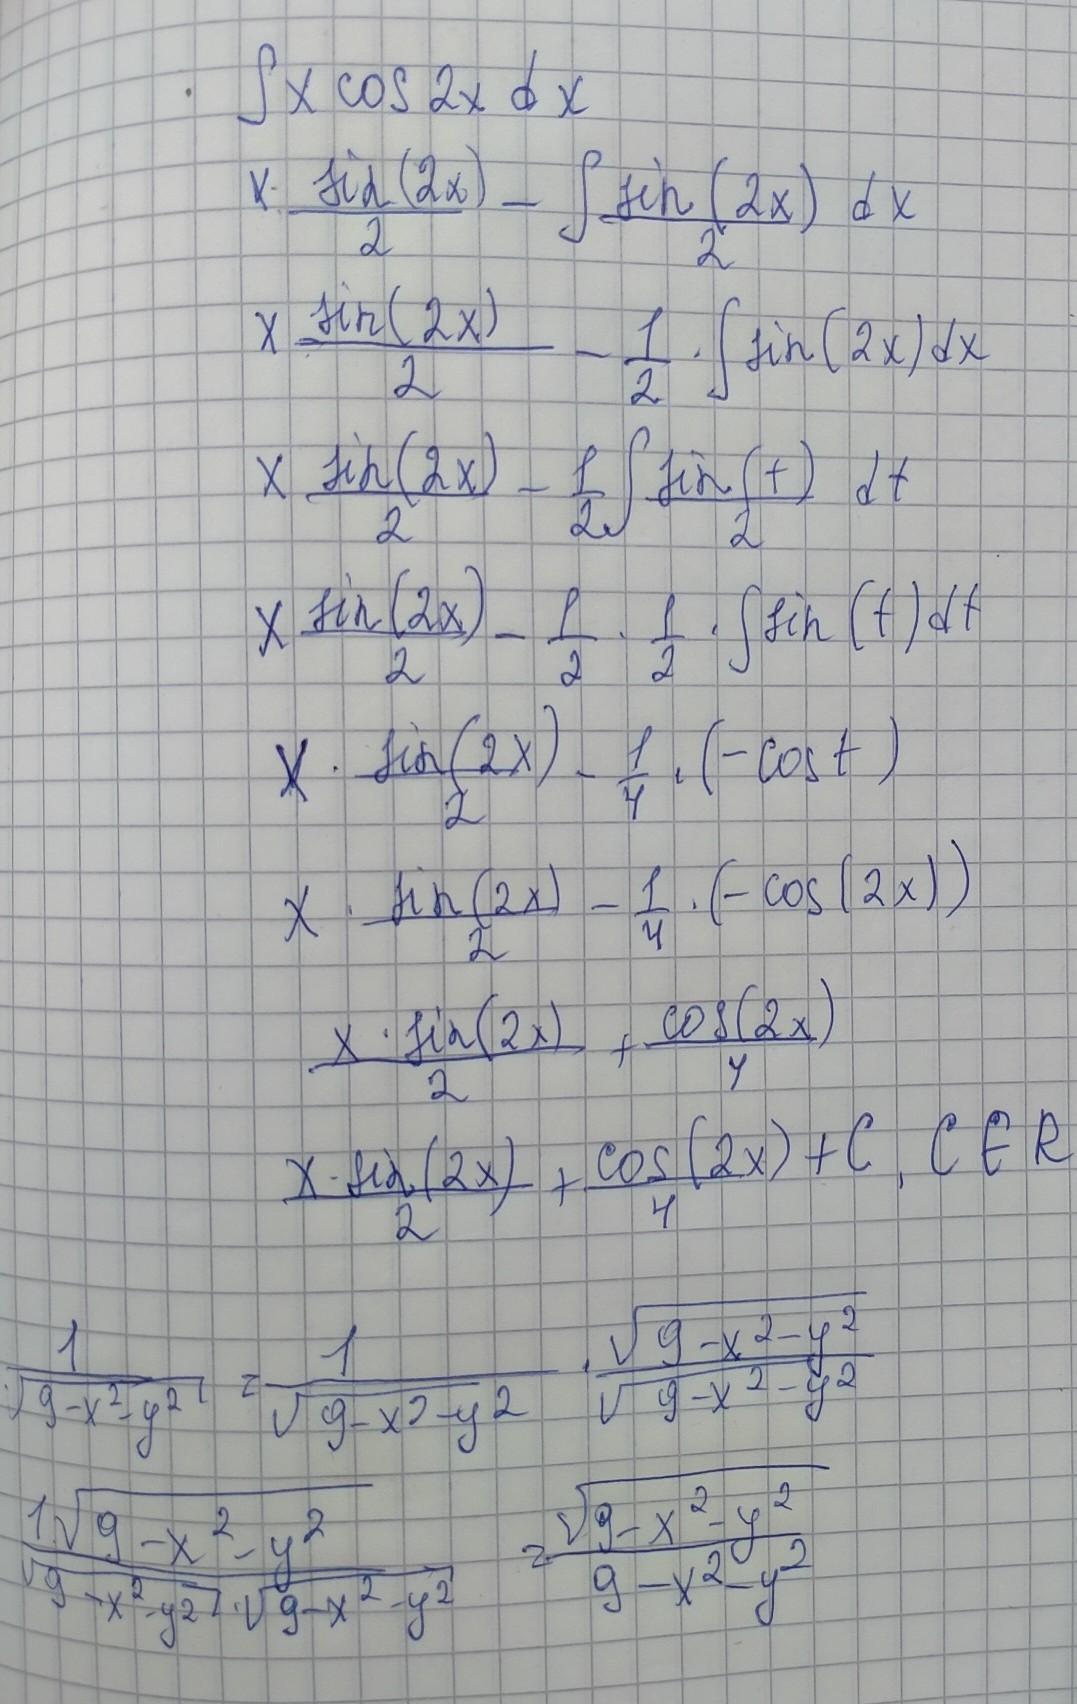 ∫ x cos 2x dx
x · sin(2x)/2 − ∫ sin(2x)/2 dx
x sin(2x)/2 − 1/2 · ∫ sin(2x) dx
x sin(2x)/2 − 1/2 ∫ sin(t)/2 dt
x sin(2x)/2 − 1/2 · 1/2 · ∫ sin(t) dt
x · sin(2x)/2 − 1/4 · (−cos t)
x · sin(2x)/2 − 1/4 · (−cos(2x))
x · sin(2x)/2 + cos(2x)/4
x · sin(2x)/2 + cos(2x)/4 + C, C ∈ R
1/√(9−x²−y²) = 1/√(9−x²−y²) · √(9−x²−y²)/√(9−x²−y²)
1√(9−x²−y²)/(√(9−x²−y²) · √(9−x²−y²)) = √(9−x²−y²)/(9−x²−y²)